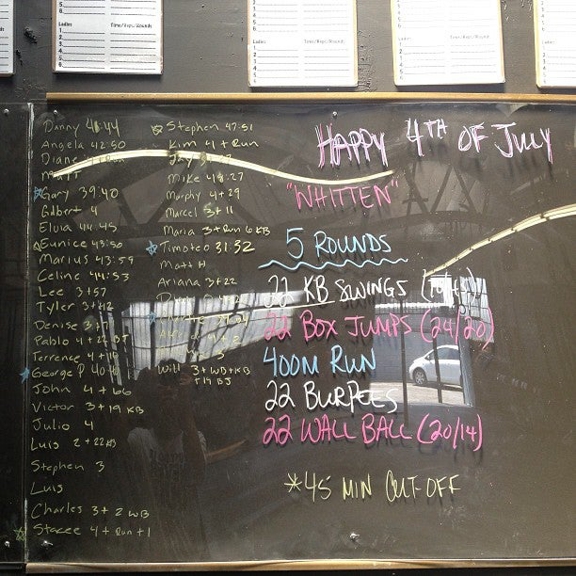 Ladies
Time/Reps/Rounds
Ladies
Time/Reps/Rounds
Ladies
Time/Reps/Rounds
Ladies
Danny
Angela 42:50
Diane
Matt
Gary 39:40
Gilbert 4
Elvia 44:45
Eunice 43:50
Marius 43:59
Celine 44:53
Lee 3+57
Tyler
Denise
Pablo 4+22 BJ
Terrence
George P
John 4+66
Victor 3+19 KB
Julio 4
Luis 2+22 KB
Stephen 3
Luis
Charles 3+2 WB
Stacee 4+Run+1
Stephen 47:51
Kim 4+Run
Jay
Mike 48:27
Murphy 4+29
Marcel 3+11
Maria 3+Run 6 KB
Timoteo 31:32
Matt H
Ariana 3+22
Will 3+WB+KB
+19 BJ
HAPPY 4TH OF JULY
"WHITTEN"
5 ROUNDS
22 KB SWINGS
22 BOX JUMPS (24/20)
400M RUN
22 BURPEES
22 WALL BALL (20/14)
*45 MIN CUT-OFF